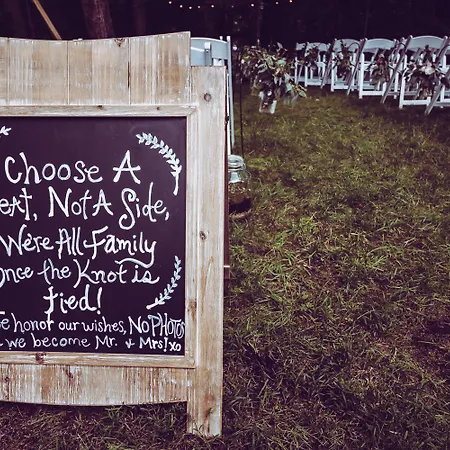 Choose A
eat, Not A Side,
We're All Family
Once the Knot is
tied!
se honor our wishes, NO PHOTOS
we become Mr. + Mrs! xo